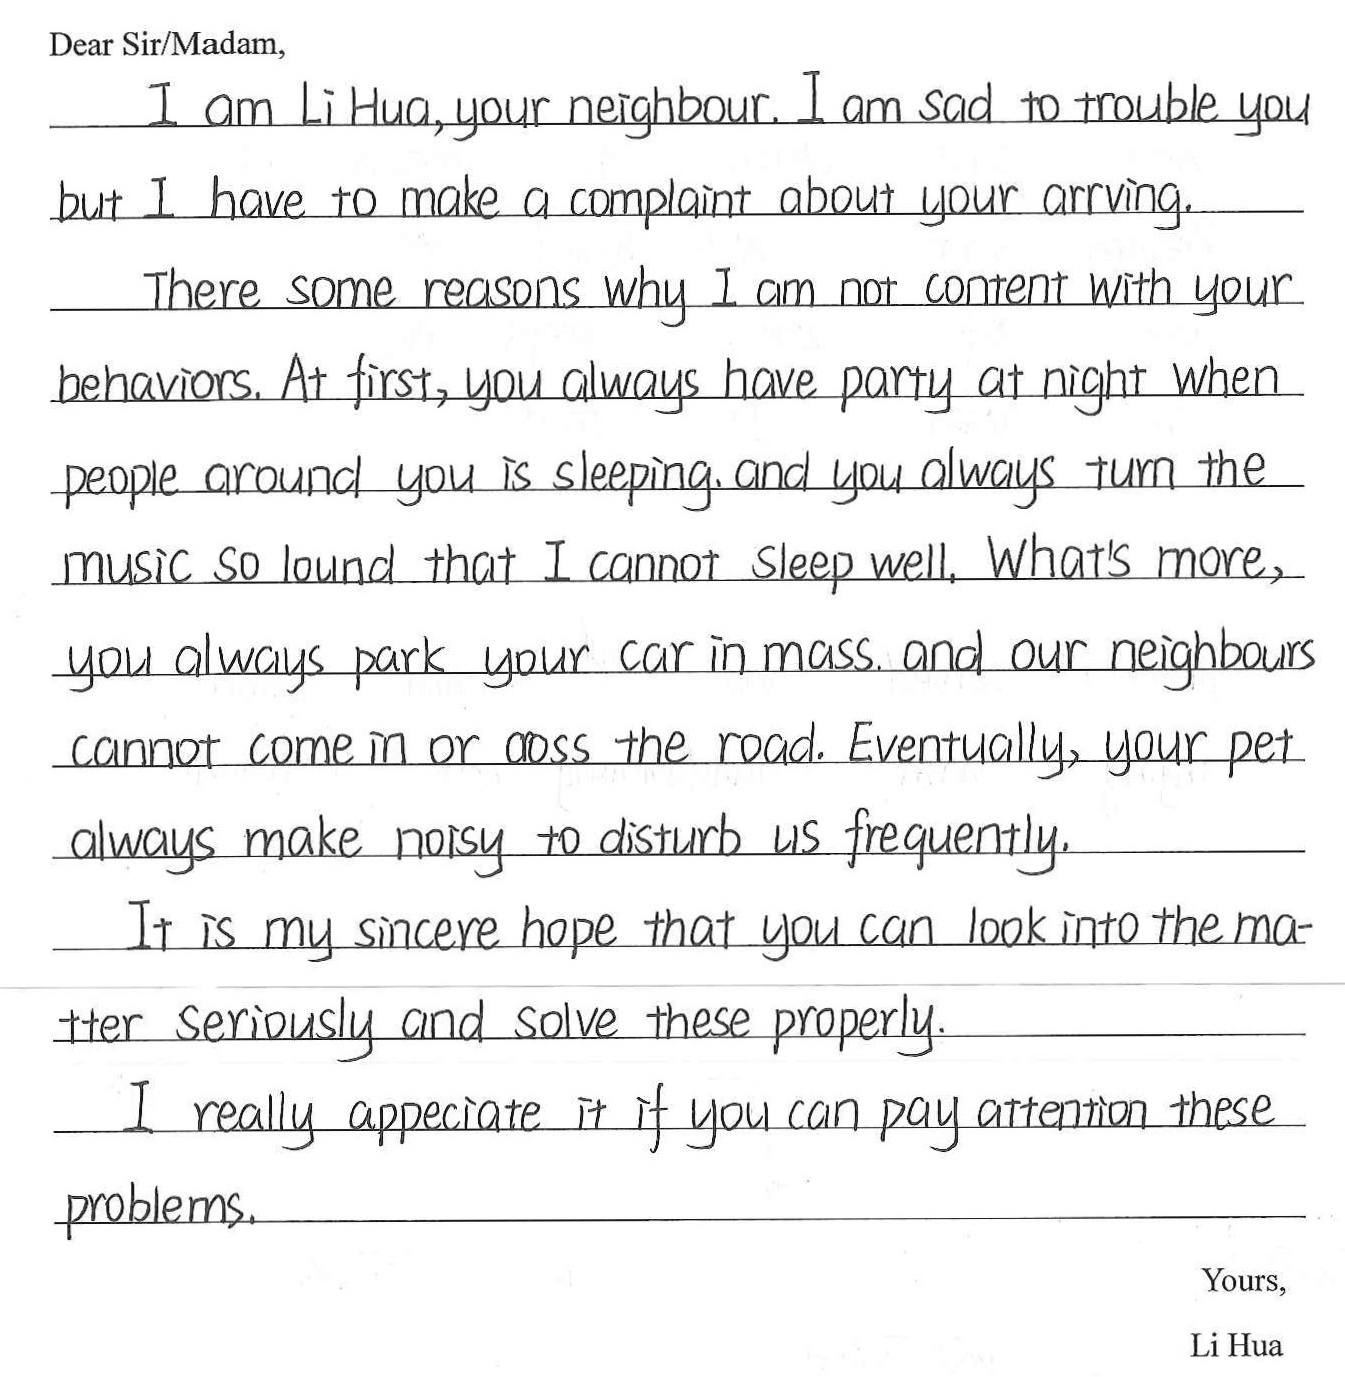 Dear Sir/Madam,
I am Li Hua, your neighbour. I am sad to trouble you
but I have to make a complaint about your arrving.
There some reasons why I am not content with your
behaviors. At first, you always have party at night when
people around you is sleeping. and you always turn the
music so lound that I cannot sleep well. What's more,
you always park your car in mass. and our neighbours
cannot come in or coss the road. Eventually, your pet
always make noisy to disturb us frequently.
It is my sincere hope that you can look into the ma-
tter seriously and solve these properly.
I really appeciate it if you can pay attention these
problems.
Yours,
Li Hua